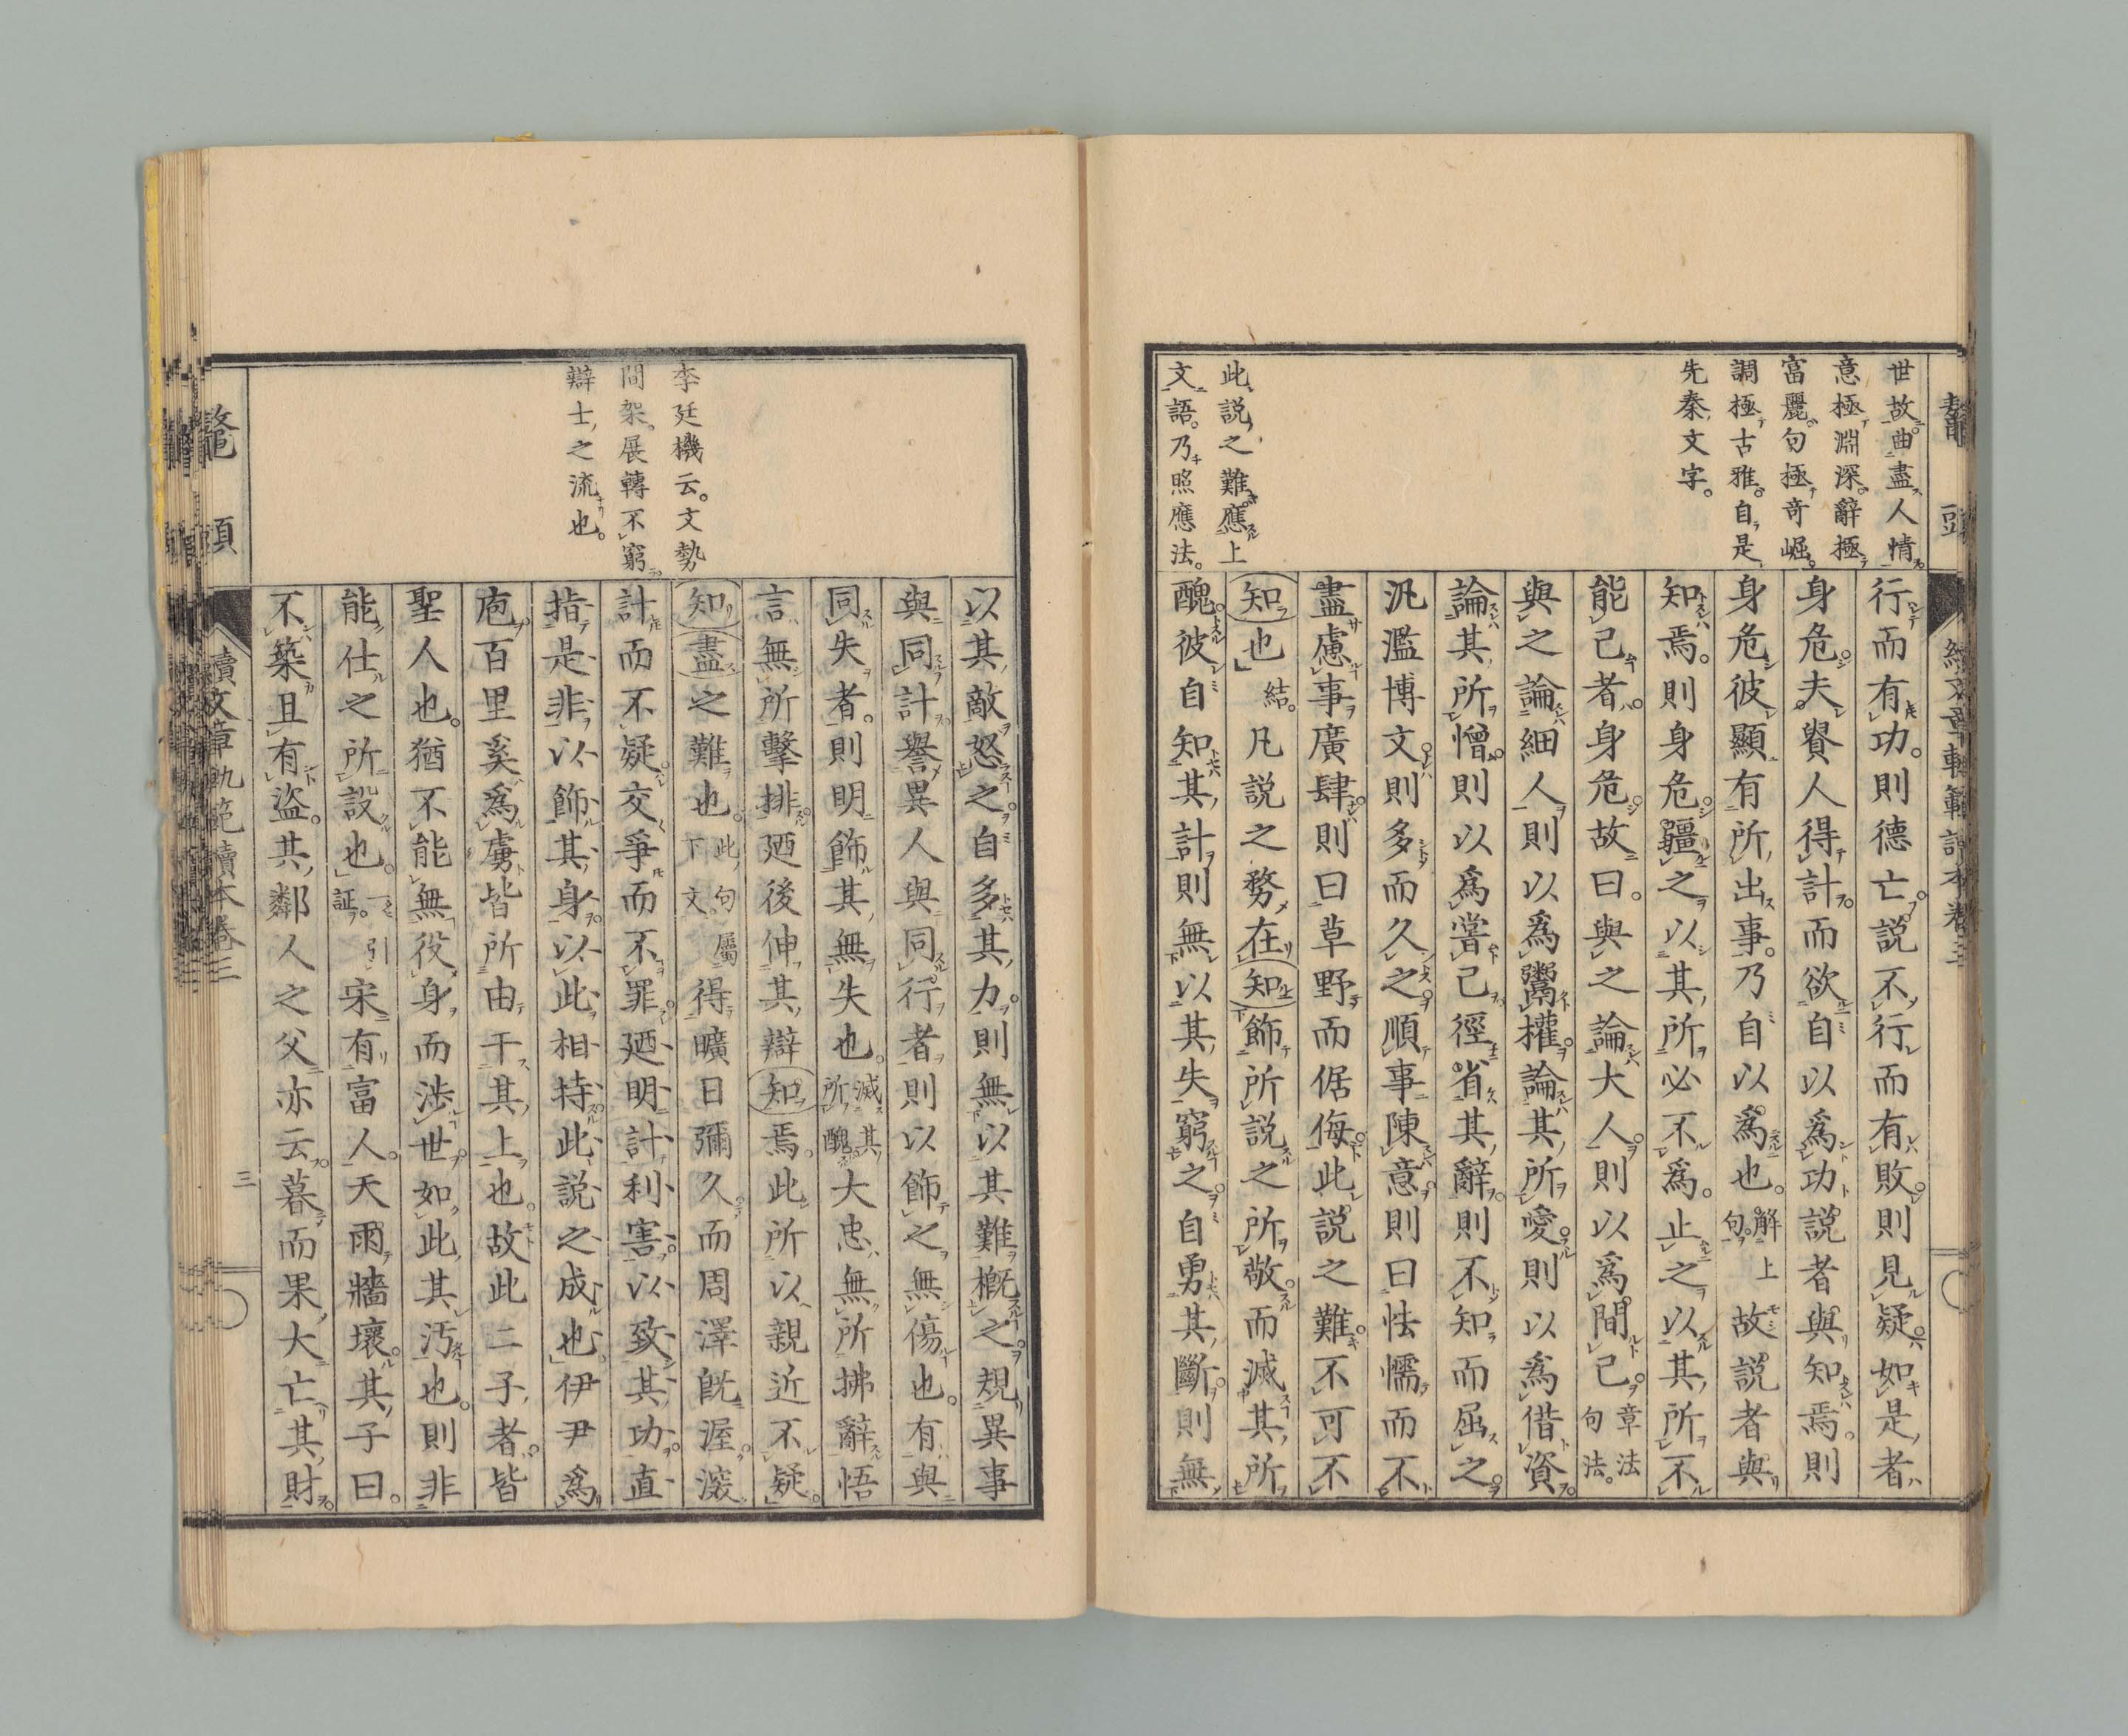 鼇頭
續文章軌範讀本卷三
世故曲盡人情
意極淵深辭極
富麗句極奇崛
調極古雅自是
先秦文字。
此說之難應上
文語。乃照應法。
行而有功。則德亡說不行而有敗則見疑如是者
身危夫貴人得計而欲自以爲功說者與知焉則
身危彼顯有所出事。乃自以爲也。解上句。故說者與
知焉。則身危彊之以其所必不爲。止之以其所不
能已者身危故曰。與之論大人則以爲間己章法句法。
與之論細人則以爲鬻權論其所愛則以爲借資
論其所憎則以爲嘗己徑省其辭則不知而屈之
汎濫博文則多而久之順事陳意則曰怯懦而不
盡慮事廣肆則曰草野而倨侮此說之難不可不
知也結。凡說之務在知飾所說之所敬而滅其所
醜彼自知其計則無以其失窮之自勇其斷則無
李廷機云。文勢
間架。展轉不窮
辯士之流也。
以其敵怒之自多其力則無以其難概之規異事
與同計譽異人與同行者則以飾之無傷也。有與
同失者。則明飾其無失也。滅其所醜大忠無所拂辭悟
言無所擊排廼後伸其辯知焉。此所以親近不疑
知盡之難也。此句屬下文。得曠日彌久而周澤既渥深
計而不疑交爭而不罪廼明計利害以致其功直
指是非以飾其身以此相持此說之成也伊尹爲
庖百里奚爲虜皆所由干其上也。故此二子者皆
聖人也。猶不能無役身而涉世如此其汚也。則非
能仕之所設也。一引証。宋有富人。天雨牆壞其子曰。
不築且有盜。其鄰人之父亦云暮而果大亡其財
鼇頭
續文章軌範讀本卷三
三